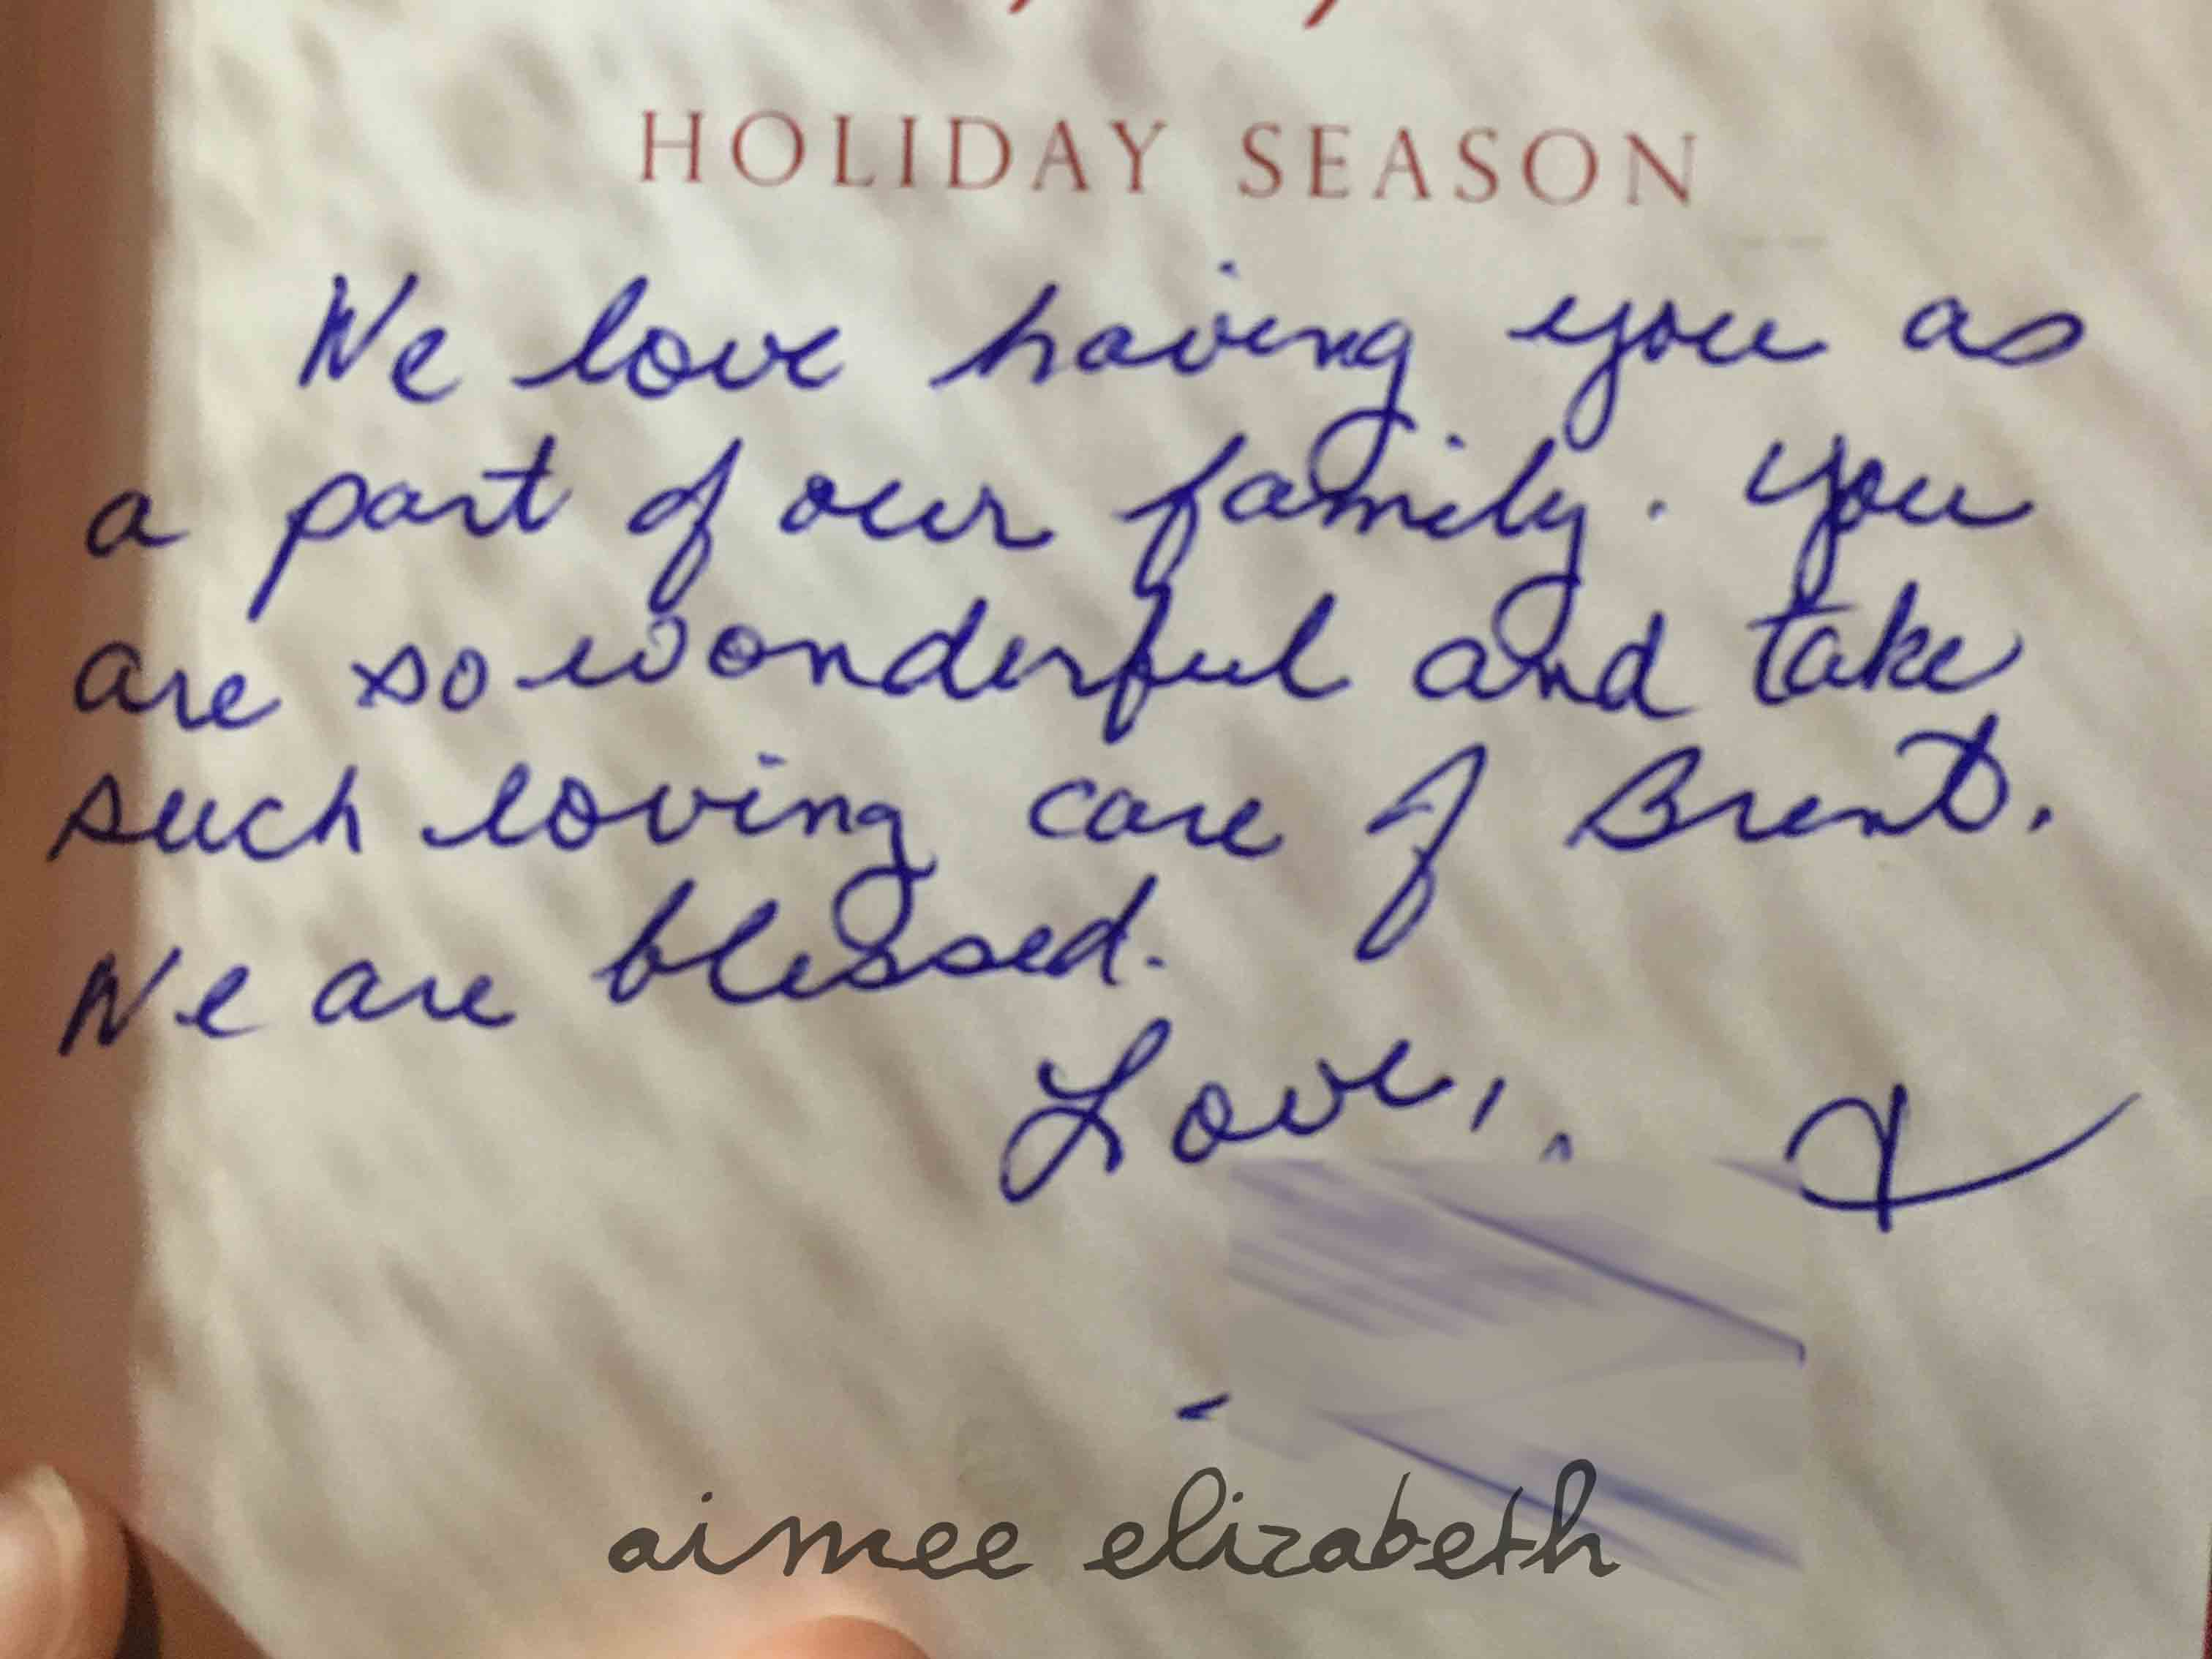 HOLIDAY SEASON
We love having you as
a part of our family. You
are so wonderful and take
such loving care of Brent.
We are blessed.
Love, &
aimee elizabeth